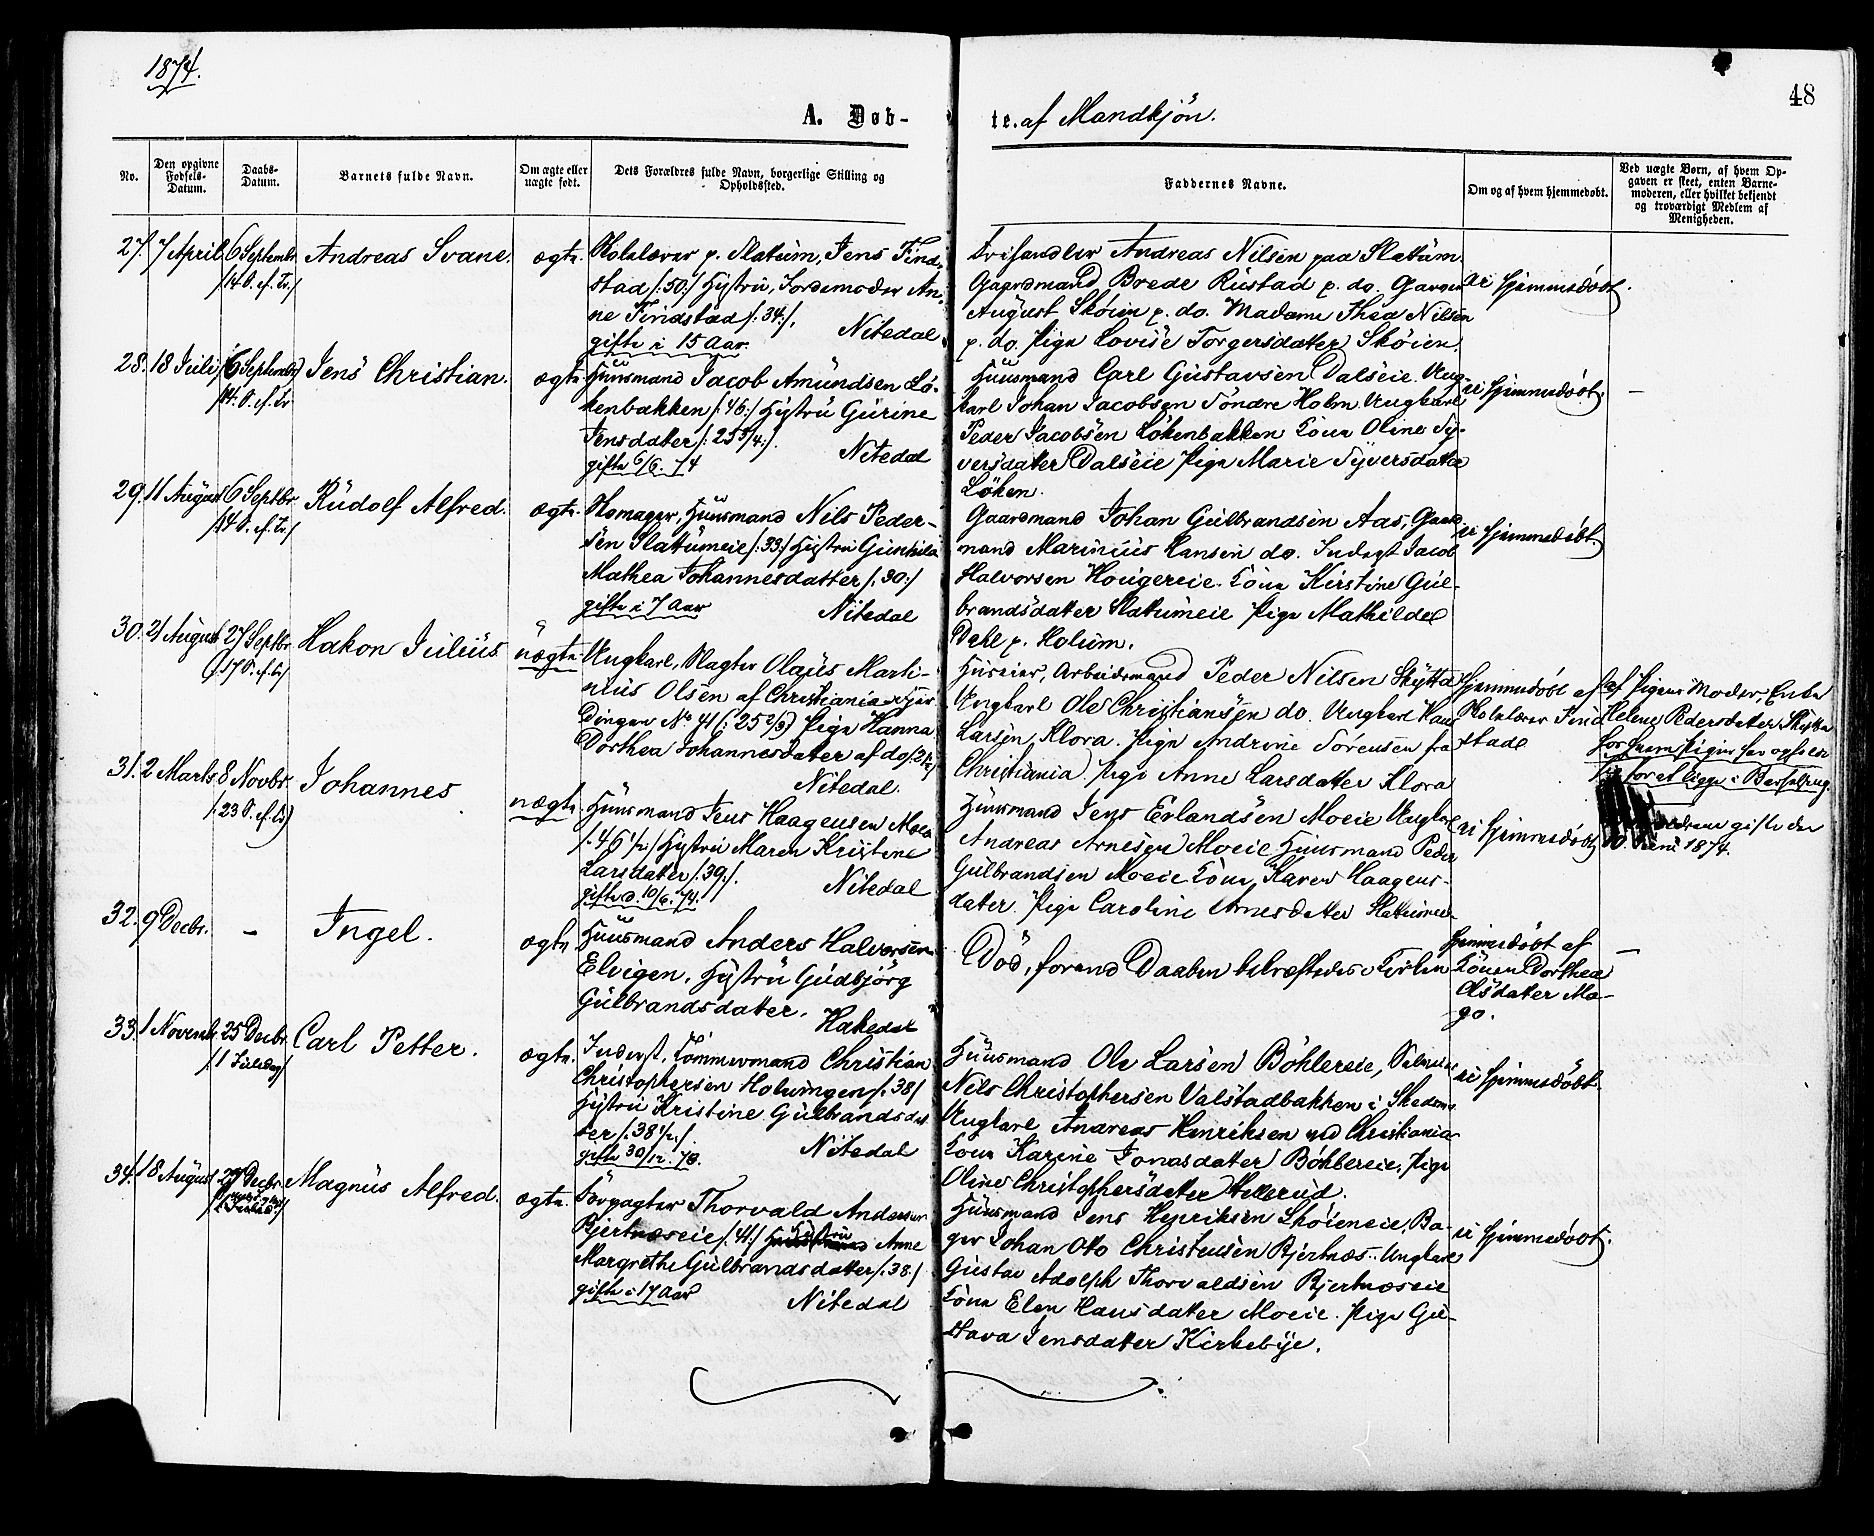 1874.
48
A. Døb-
te. af Mandkjön.
No.
Den opgivne
Fødsels-
Datum.
Daabs-
Datum.
Barnets fulde Navn.
Om ægte eller
uægte født.
Dets Forældres fulde Navn, borgerlige Stilling og
Opholdssted.
Faddernes Navne.
Om og af hvem hjemmedøbt.
Ved uægte Børn, af hvem Op-
gaven er skeet, enten Barne-
moderen, eller hvilket bekjendt
og troværdigt Medlem af
Menigheden.
27. 7 April 6 Septembr
/14 S. ef. Tr./
Andreas Svane.
ægte.
Skolelærer p. Slatum, Jens Find-
stad /:50:/ Hustru, Jordemoder An-
ne Findstad /:34:/.
gifte i 15 Aar. Nitedal
Andreas Nilsen paa Slatum.
Gaardmand Brede Rustad p. do. Garver
August Skøien p. do. Madame Thea Nilsen
p. do. Pige Lovise Torgersdatter Skøien.
ei hjemmedøbt.
28. 18 Juli 6 Septembr
/14. S. ef. Tr
Jens Christian.
ægte
Huusmand Jacob Amundsen Lø-
kenbakken /:46:/ Hustru Gurine
Jensdatter /:25 3/4:/.
gifte 6/6. 74 Nitedal
Huusmand Carl Gustavsen Dalseie. Ung-
karl Johan Jacobsen Söndre Holm. Ungkarl
Peder Jacobsen Løkenbakken Kone Oline Sy-
versdatter Dalseie Pige Marie Syversdatter
Løken.
ei hjemmedøbt.
–
29. 11 August 6 Septbr
/14 S. ef. Tr/
Rudolf Alfred.
ægte.
Skomager, Huusmand Nils Peder-
sen Slatumeie /:33:/ Hustru Gunhild
Mathea Johannesdatter /:30:/
gifte i 7 Aar Nitedal
Gaardmand Johan Gulbrandsen Aas, Gaard
mand Marinius Hansen do. Inderst Jacob
Halvorsen Hougereie. Kone Kirstine Gul-
brandsdatter Slatumeie Pige Mathilde
Dahl p. Holum.
ei hjemmedøbt.
30. 21 August 27 Septbr
/:17 S. ef. Tr/
Hakon Julius
uægte
Ungkarl, Slagter Olaus Marti-
nius Olsen af Christiania
No 41 (: 25 2/3) Pige Hanna
Dorthea Johannesdatter af do
Nitedal.
Huseier, Arbeidsmand Peder Nilsen Skytta
Ungkarl Ole Christiansen do. Ungkarl Hans
Larsen, Klora. Pige Andrine Sörensen fra
Christiania. Pige Anne Larsdatter Klora
Hjemmedøbt af
Skolelærer Find
stad
af Pigens Moder, Enke
Helene Pedersdatter Skytta
for at ligge i Barselseng.
31. 2 Marts 8 Novbr
/:23 S. ef. Tr)
Johannes
uægte.
Huusmand Jens Haagensen Moeie
/:46 1/2:/ Hustru Maren Kristine
Larsdatter /:39:/.
gifte d. 10/6. 74. Nitedal
Huusmand Jens Erlandsen Moeie Ungkarl
Andreas Arnesen Moeie Huusmand Peder
Gulbrandsen Moeie Kone Karen Haagens-
datter. Pige Caroline Arnesdatter Slatumeie
ei hjemmedøbt
gifte den
10. Juni 1874.
32. 9 Decbr.
–
Ingel.
ægte
Huusmand Anders Halvorsen
Elvigen. Hustru Gudbjörg
Gulbrandsdatter.
Hakedal
Död, forend Daaben bekræftedes i Kirken
Hjemmedöbt af
Konen Dorthea
Olsdatter Mo-
go.
–
33. 1 Novemb 25 Decbr
/1 Juledag/
Carl Petter.
ægte.
Inderst, Tömmermand Christian
Christophersen Holmingen /:38/
Hustru Kristine Gulbrandsdat
ter /:38 1/2:/.
gifte 30/12. 73. Nitedal
Huusmand Ole Larsen Böhlereie,
Nils Christophersen Valstadbakken i Skedsmo
Ungkarl Andreas Henriksen ved Christiania
Kone Karine Jonasdatter Böhlereie, Pige
Oline Christophersdatter Hellerud.
ei hjemmedöbt.
34. 18 August 27 Decbr.
Magnus Alfred.
ægte.
Forpagter Thorvald Andersen
Bjertnæseie /:41:/ Hustru Anne
Margrethe Gulbrandsdatter /:38:/
gifte i 17 Aar
Nitedal
Huusmand Jens Henriksen Skøieneie, Ba-
ger Johan Otto Christensen Bjertnæs. Ungkarl
Gustav Adolph Thorvaldsen Bjertnæseie
Kone Elen Hansdatter Moeie. Pige Gu-
stava Jensdatter Kirkebye.
ei hjemmedøbt.